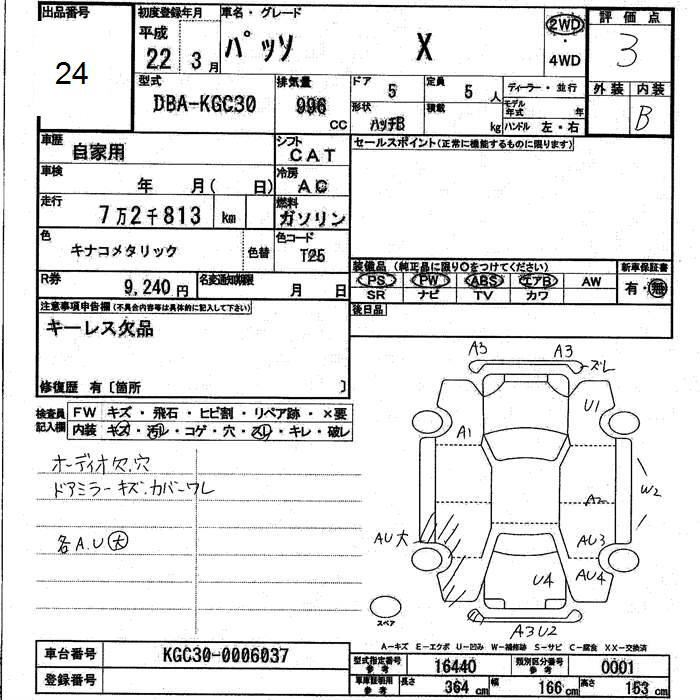 出品番号
24
初度登録年月
平成
22 3月
車名・グレード
パッソ X
2WD
・
4WD
評価点
3
外装 内装
B
型式
DBA-KGC30
排気量
996
CC
ドア
5
定員
5人
形状
ハッチB
積載
kg
ディーラー・並行
モデル
年式 年
ハンドル 左・右
車歴
自家用
シフト
CAT
セールスポイント(正常に機能するものに限ります)
車検
年 月( 日)
冷房
AC
走行
7万2千813 km
燃料
ガソリン
色
キナコメタリック
色替
色コード
T25
装備品 (純正品に限り○をつけてください)
新車保証書
PS PW ABS エアB AW
有・無
SR ナビ TV カワ
R券
9,240円
名変通知期限
月 日
後日品
注意事項申告欄(不具合内容等は具体的に記入して下さい)
キーレス欠品
修復歴 有〔箇所 〕
検査員
記入欄
FW キズ・飛石・ヒビ割・リペア跡・×要
内装 キズ・汚レ・コゲ・穴・スレ・キレ・破レ
オーディオ欠.穴
ドアミラーキズ.カバーワレ
各A.U大
A3 A3
ズレ
U1
A1
A2
W2
AU大
AU3
AU4
U4
A3U2
スペア
A-キズ E-エクボ U-凹み W-補修跡 S-サビ C-腐食 XX-交換済
車台番号
KGC30-0006037
登録番号
型式指定番号
参考
16440
類別区分番号
参考
0001
車庫証明用
参考
長さ
364cm
幅
166cm
高さ
153cm